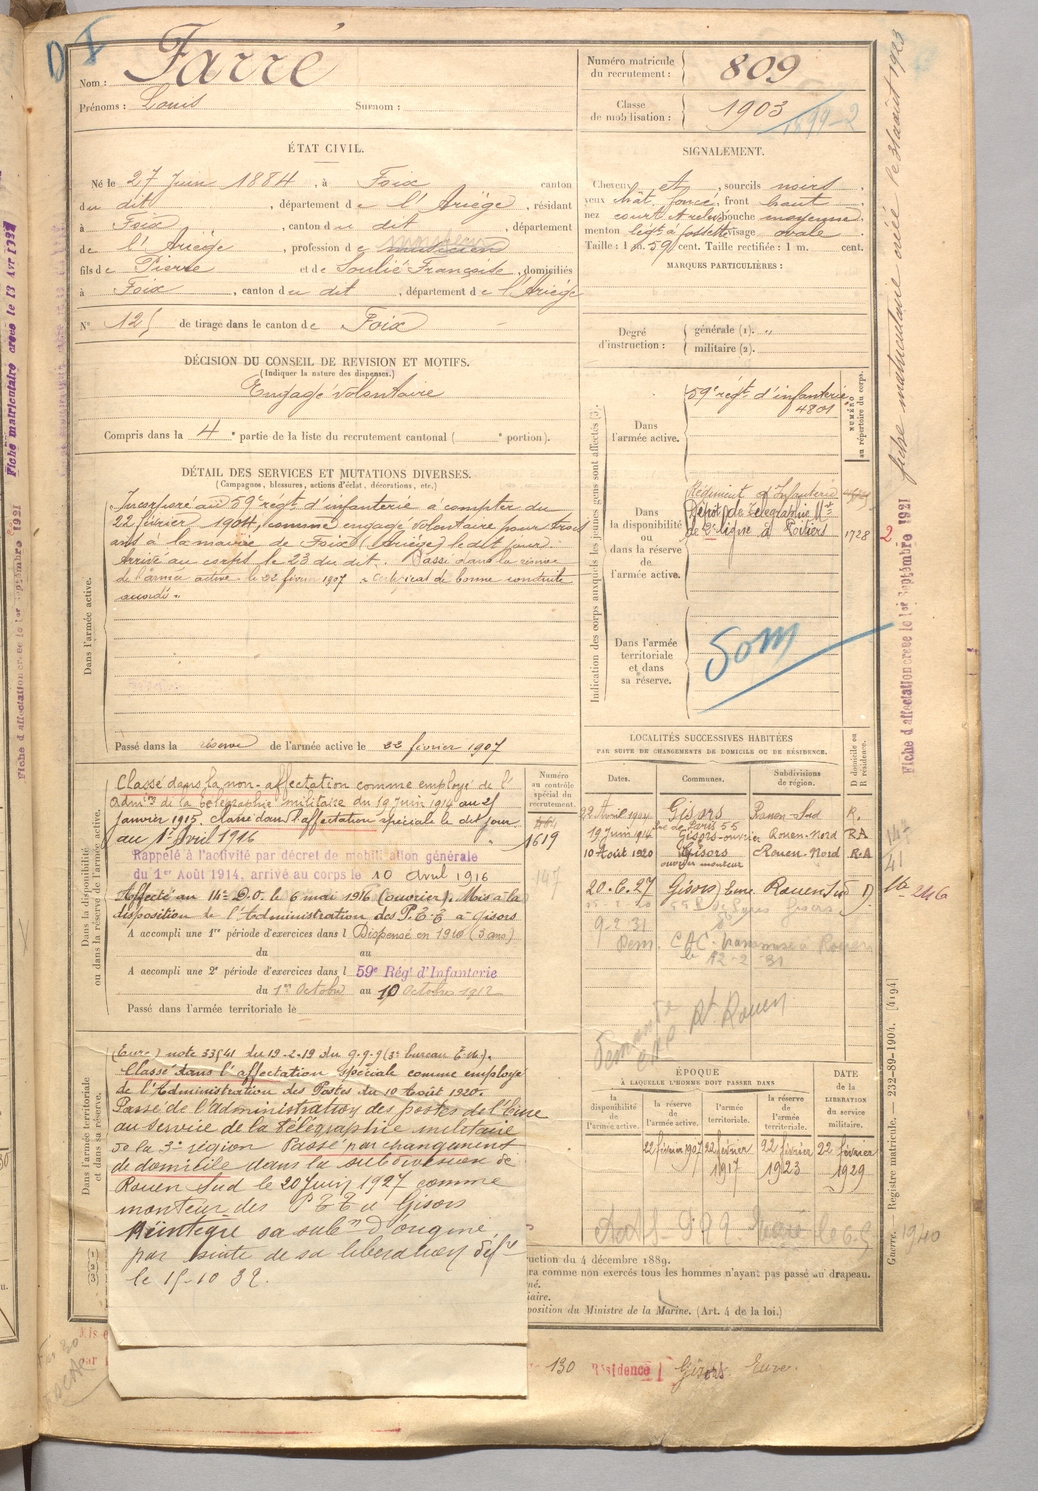 Nom : Farré
Prénoms : Louis Surnom :
Numéro matricule
du recrutement : 809
Classe
de mobilisation : 1903
1899-2
ÉTAT CIVIL.
Né le 27 Juin 1884, à Foix canton
du dit, département de l'Ariège, résidant
à Foix, canton du dit, département
de l'Ariège, profession de musicien
fils de Pierre et de Soulié Françoise, domiciliés
à Foix, canton du dit, département de l'Ariège
N° 125 de tirage dans le canton de Foix
SIGNALEMENT.
Cheveux et, sourcils noirs
yeux chât. foncé, front haut
nez court et relev. bouche moyenne.
menton visage ovale
Taille : 1 m. 59 cent. Taille rectifiée : 1 m. cent.
MARQUES PARTICULIÈRES :
Degré
d'instruction :
générale (1). "
militaire (2).
DÉCISION DU CONSEIL DE REVISION ET MOTIFS.
(Indiquer la nature des dispenses.)
Engagé volontaire
Compris dans la 4e partie de la liste du recrutement cantonal ( e portion).
DÉTAIL DES SERVICES ET MUTATIONS DIVERSES.
(Campagnes, blessures, actions d'éclat, décorations, etc.)
Dans l'armée active.
Incorporé au 59e régt d'infanterie à compter du
22 février 1904, comme engagé volontaire pour trois
ans à la mairie de Foix (Ariège) le dit jour.
Arrivé au corps le 23 du dit. Passé dans la réserve
de l'armée active le 22 février 1907 « certificat de bonne conduite
accordé »
Passé dans la réserve de l'armée active le 22 février 1907
Indication des corps auxquels les jeunes gens sont affectés
NUMÉRO
au répertoire du corps.
Dans
l'armée active.
59e régt d'infanterie
4801
Dans
la disponibilité
ou
dans la réserve
de
l'armée active.
Régiment d'Infanterie
Dépôt de Télégraphie Mre
de 2e ligne à Poitiers 1728
2
Dans l'armée
territoriale
et dans
sa réserve.
50m
Dans la disponibilité
ou dans la réserve de l'armée active.
Numéro
au contrôle
spécial du
recrutement.
1619
Classé dans la non-affectation comme employé de l'
admon de la télégraphie militaire du 19 Juin 1914 au 25
Janvier 1915. Classé dans l'affectation spéciale le dit jour
au 1er Avril 1916
Rappelé à l'activité par décret de mobilisation générale
du 1er Août 1914, arrivé au corps le 10 Avril 1916
Affecté au 14e D.O. le 6 mai 1916 (ouvrier). Mis à la
disposition de l'Administration des P.T.T à Gisors
A accompli une 1re période d'exercices dans l Dispensé en 1910 (3 ans)
du au
A accompli une 2e période d'exercices dans l 59e Régt d'Infanterie
du 1er Octobre au 10 Octobre 1912
Passé dans l'armée territoriale le
LOCALITÉS SUCCESSIVES HABITÉES
PAR SUITE DE CHANGEMENTS DE DOMICILE OU DE RÉSIDENCE.
Dates. Communes. Subdivisions
de région.
D domicile ou
R résidence.
22 Avril 1904 Gisors Rouen-Sud R.
rue de Paris 55
19 Juin 1914 Gisors-ouvrier Rouen-Nord RA
10 Août 1920 Gisors Rouen-Nord RA
ouvrier monteur
20.6.27 Gisors Eure Rouen Sud D.
246
9-2-31
Dem. CAC transmise à Rouen
le 12-2-31
Rouen
Dans l'armée territoriale
et dans sa réserve.
(Eure) note 33541 du 19-2-19 du (3e bureau E.M.).
Classé dans l'affectation spéciale comme employé
de l'Administration des Postes du 10 Août 1920.
Passé de l'administration des postes de l'Eure
au service de la télégraphie militaire
de la 3e région Passé par changement
de domicile dans la subdivision de
Rouen Sud le 20 Juin 1927 comme
monteur des PTT à Gisors
Réintègre sa subon d'origine
par suite de sa libération défve
le 15-10 32.
ÉPOQUE
À LAQUELLE L'HOMME DOIT PASSER DANS
la
disponibilité
de
l'armée active.
la réserve
de
l'armée active.
l'armée
territoriale.
la réserve
de
l'armée
territoriale.
DATE
de la
LIBERATION
du service
militaire.
22 février 1907
22 février 1917
22 février 1923
22 février 1929
1940
uction du 4 décembre 1889.
ra comme non exercés tous les hommes n'ayant pas passé au drapeau.
position du Ministre de la Marine. (Art. 4 de la loi.)
130 Résidence Gisors Eure.
Guerre. — Registre matricule. — 232-89-1904. [4194]
Fiche matriculaire créée le 31 août 1923
Fiche d'affectation créée le 1er Septembre 1921
Fiche matriculaire créée le 13 Avr
Fiche d'affectation créée le 1er Septembre 1921